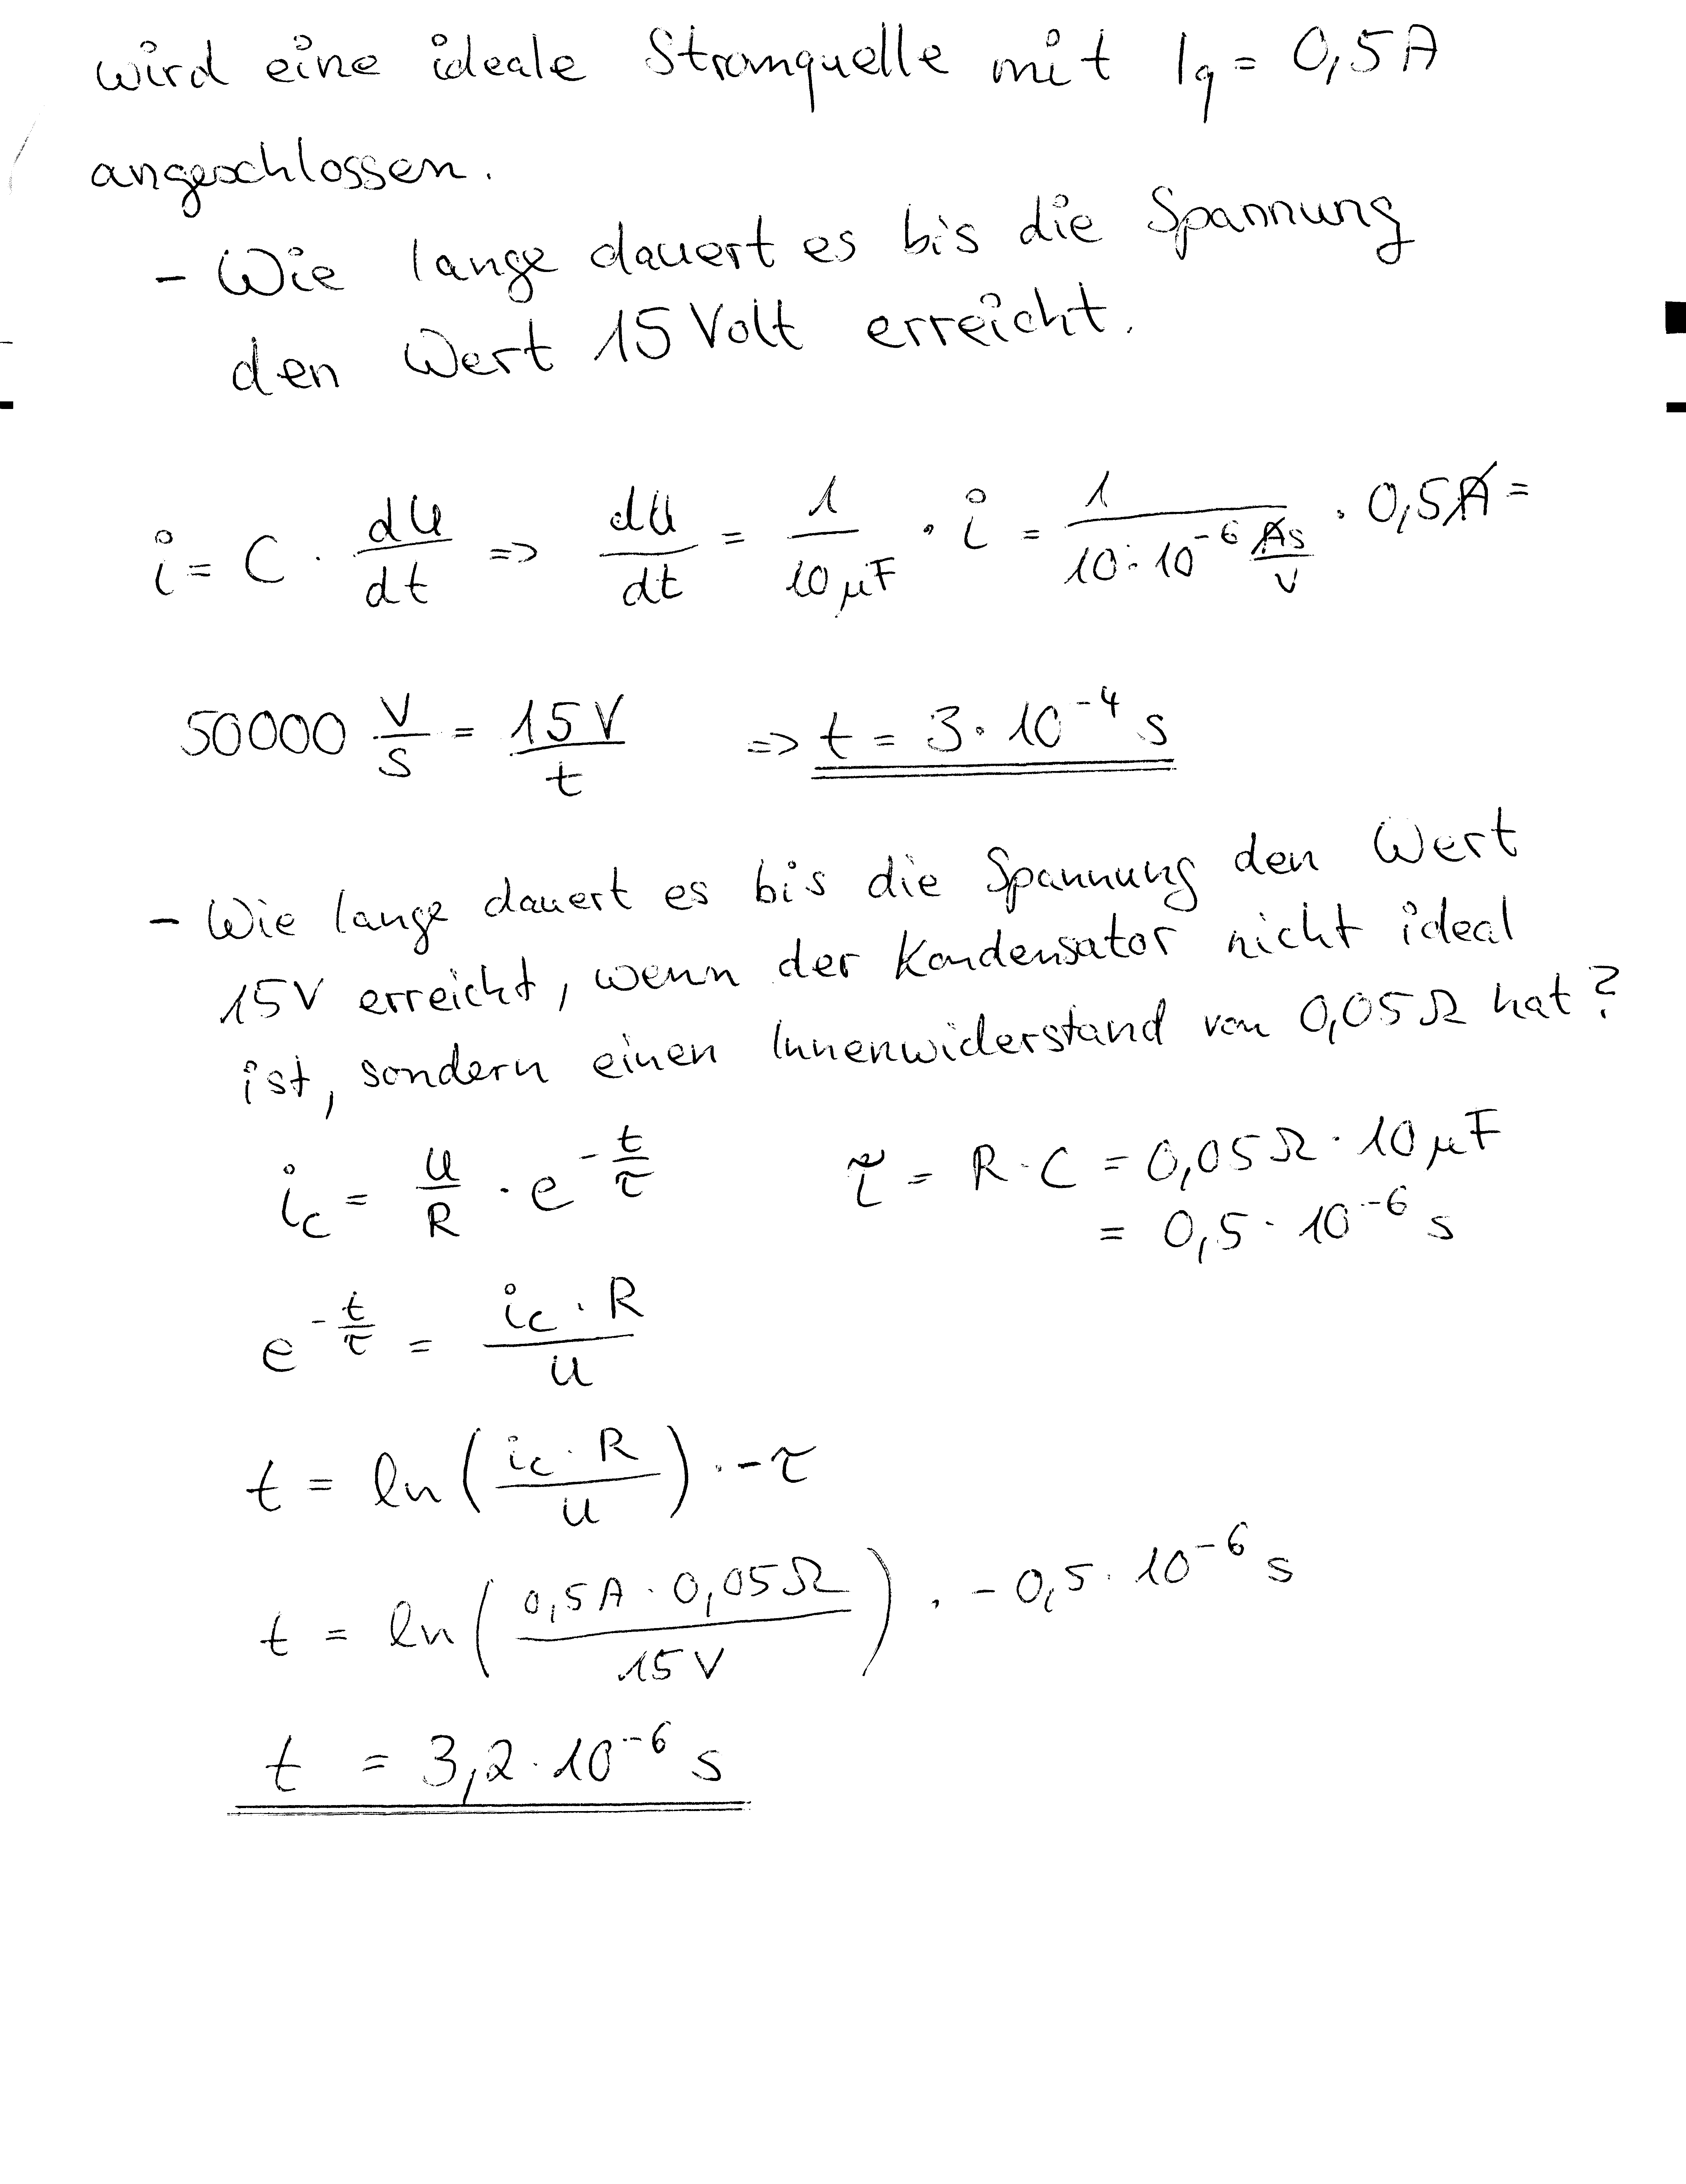 wird eine ideale Stromquelle mit Iq = 0,5A
angeschlossen.
- Wie lange dauert es bis die Spannung
den Wert 15 Volt erreicht.
i = C · dU/dt => dU/dt = 1/10µF · i = 1/(10·10⁻⁶ As/V) · 0,5A =
50000 V/s = 15V/t => t = 3·10⁻⁴ s
- Wie lange dauert es bis die Spannung den Wert
15V erreicht, wenn der Kondensator nicht ideal
ist, sondern einen Innenwiderstand von 0,05Ω hat?
i_c = U/R · e^(-t/τ) τ = R·C = 0,05Ω · 10µF
= 0,5·10⁻⁶ s
e^(-t/τ) = (i_c · R)/U
t = ln((i_c · R)/U) · -τ
t = ln((0,5A · 0,05Ω)/15V) · -0,5·10⁻⁶ s
t = 3,2·10⁻⁶ s